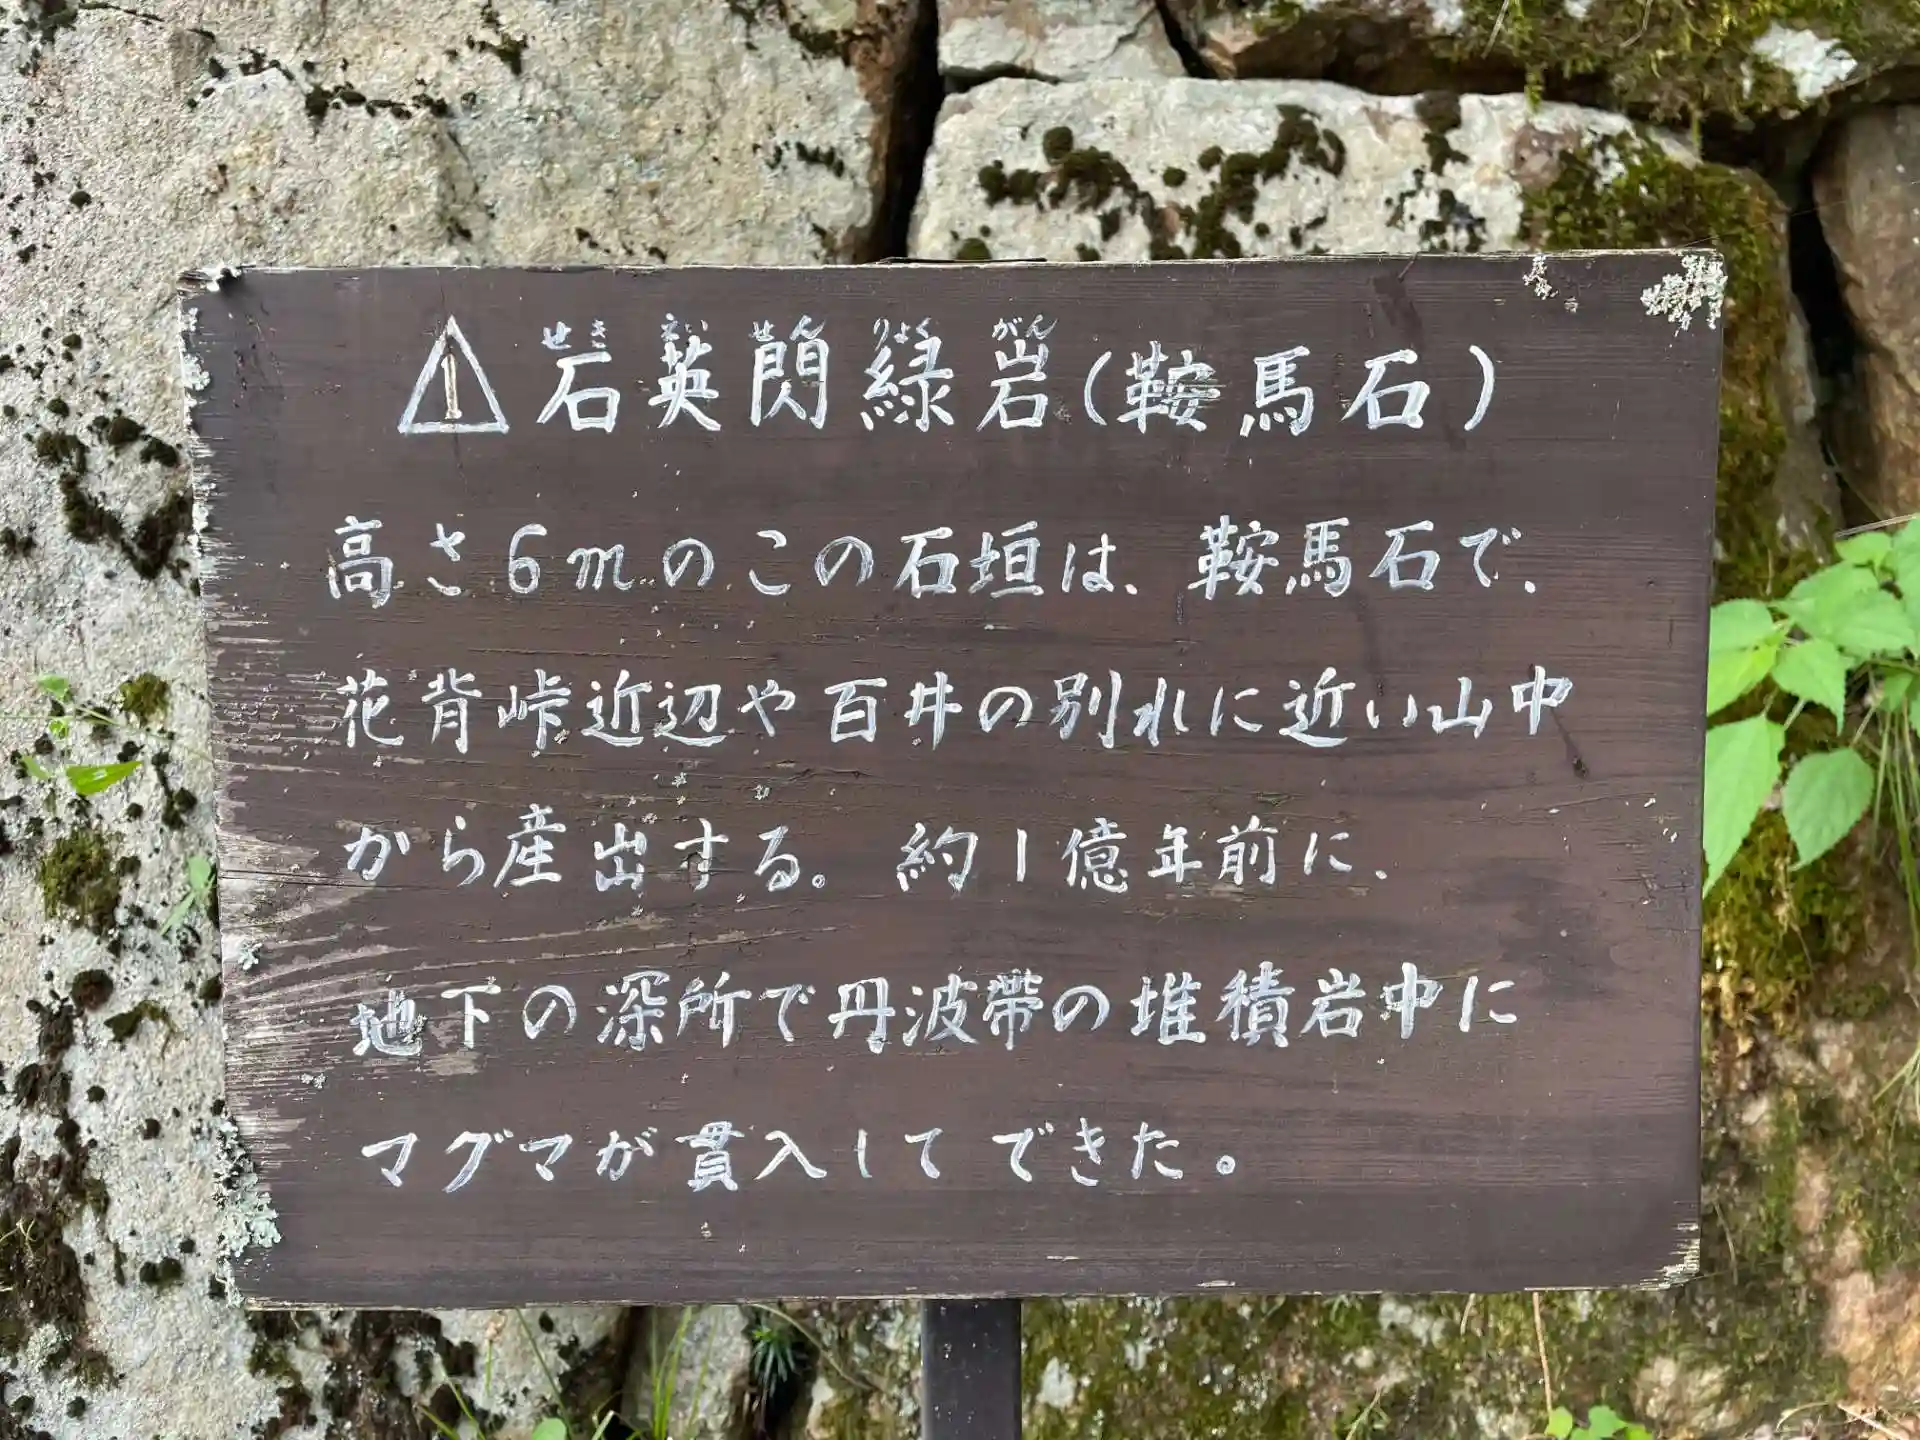 1 石英閃緑岩(鞍馬石)
せき えい せん りょく がん
高さ6mのこの石垣は、鞍馬石で、
花背峠近辺や百井の別れに近い山中
から産出する。約1億年前に、
地下の深所で丹波帯の堆積岩中に
マグマが貫入してできた。